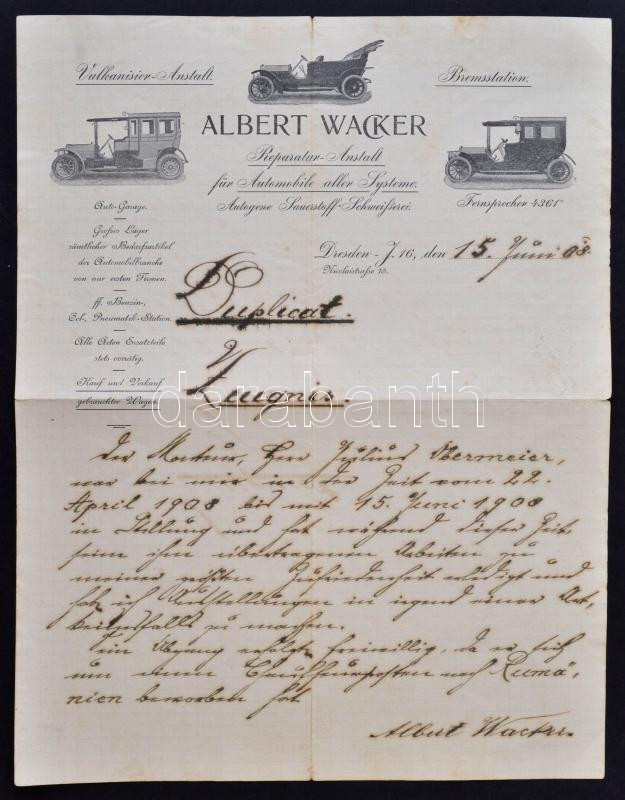 Vulkanisier-Anstalt.
Bremsstation.
ALBERT WACKER
Reparatur-Anstalt
für Automobile aller Systeme.
Autogene Sauerstoff-Schweißerei.
Fernsprecher 4361
Auto-Garage.
Großes Lager
sämtlicher Bedarfsartikel
der Automobilbranche
von nur ersten Firmen.
ff. Benzin-,
Oel-, Pneumatik-Station.
Alle Arten Ersatzteile
stets vorrätig.
Kauf und Verkauf
gebrauchter Wagen.
Dresden-J. 16, den 15. Juni 08.
Nicolaistraße 15.
Duplicat.
Zeugnis.
darabanth
Der Monteur, Herr Julius Obermeier,
war bei mir in der Zeit vom 22.
April 1908 bis mit 15. Juni 1908
in Stellung und hat während dieser Zeit
seine ihm übertragenen Arbeiten zu
meiner größten Zufriedenheit erledigt und
habe ich Ausstellungen in irgend einer Art
keinesfalls zu machen.
Sein Abgang erfolgt freiwillig, da er sich
um einen Chauffeurposten nach Rumä-
nien beworben hat
Albert Wacker.